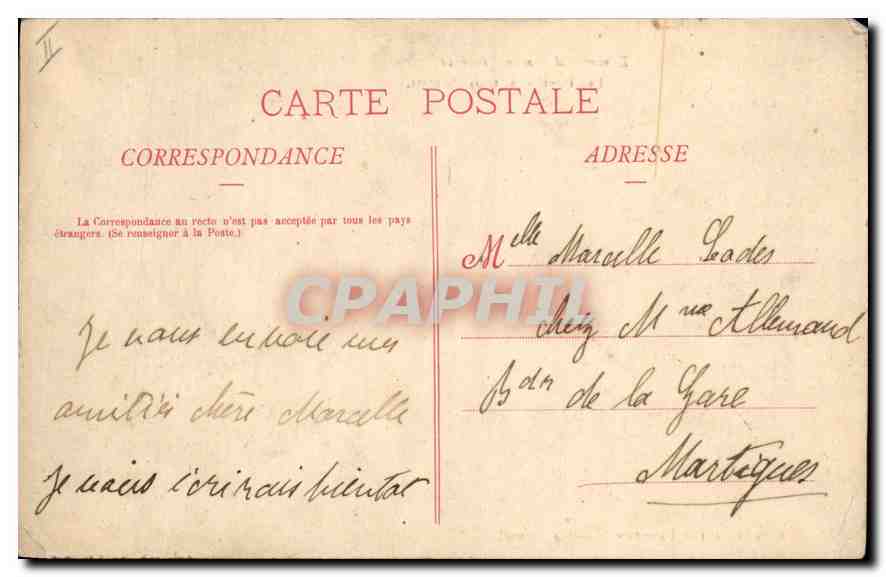 II
CARTE POSTALE
CORRESPONDANCE
ADRESSE
La Correspondance au recto n'est pas acceptée par tous les pays
étrangers. (Se renseigner à la Poste.)
Melle Marcelle
chez Mme Allemand
Bd de la Gare
Martigues
CPAPHIL
Je vous envoie mes
amitiés chère Marcelle
Je vous écrirais bientot